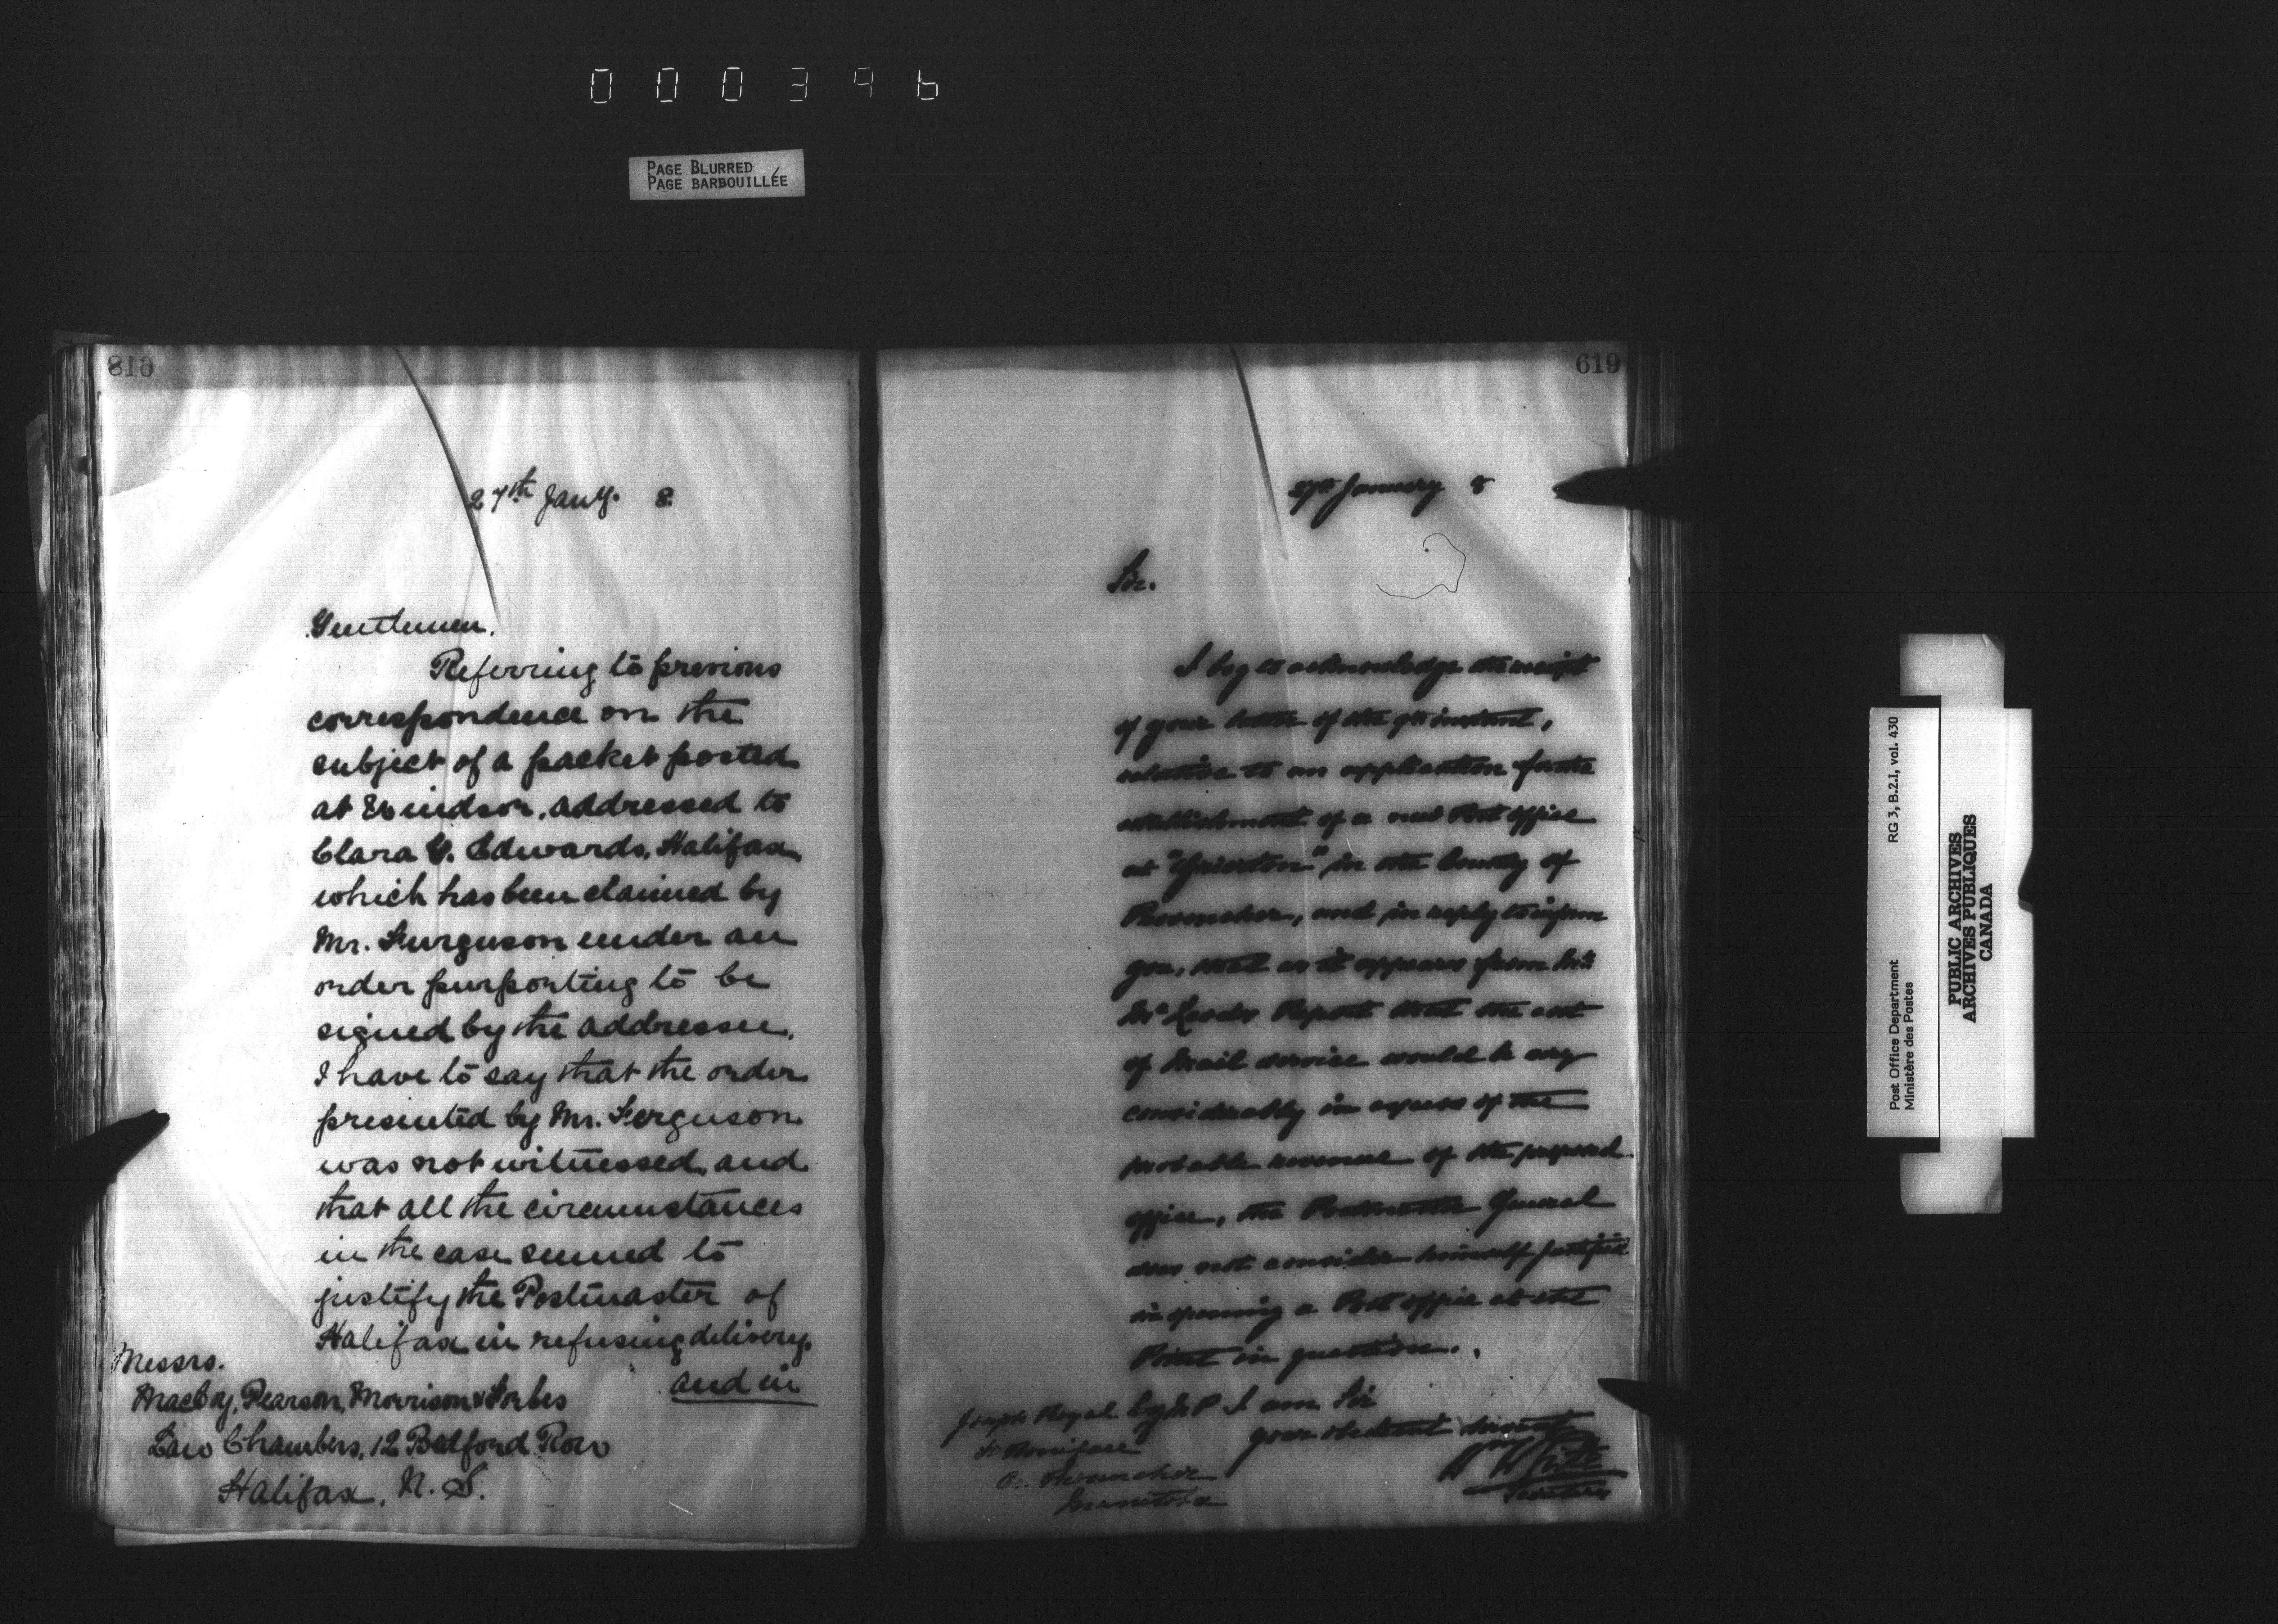 000396
PAGE BLURRED
PAGE BARBOUILLÉE
27th Jany. 8
Gentlemen.
Referring to previous
correspondence on the
subject of a packet posted
at Windsor, addressed to
Clara Y. Edwards, Halifax,
which has been claimed by
Mr. Furguson under an
order purporting to be
signed by the addressee.
I have to say that the order
presented by Mr. Ferguson
was not witnessed, and
that all the circumstances
in the case seemed to
justify the Postmaster of
Halifax in refusing delivery.
and in
Messrs.
MacCoy, Pearson, Morrison & Forbes
Law Chambers, 12 Bedford Row
Halifax, N. S.
619
27th January 8
Sir.
I beg to acknowledge the receipt
of your letter of the 9th instant,
relative to an application for the
establishment of a new Post office
at in the County of
Provencher, and in reply to inform
you, that as it appears from Mr.
McLeods Report that the cost
of Mail service would be very
considerably in excess of the
probable revenue of the proposed
office, the Postmaster General
does not consider himself justified
in opening a Post office at the
Point in question.
I am Sir
your obedient Servant
Wm White
Secretary
Joseph Royal Esq M.P
St. Boniface
Co. Provencher
Manitoba
RG 3, B.2.I, vol. 430
Post Office Department
Ministère des Postes
PUBLIC ARCHIVES
ARCHIVES PUBLIQUES
CANADA